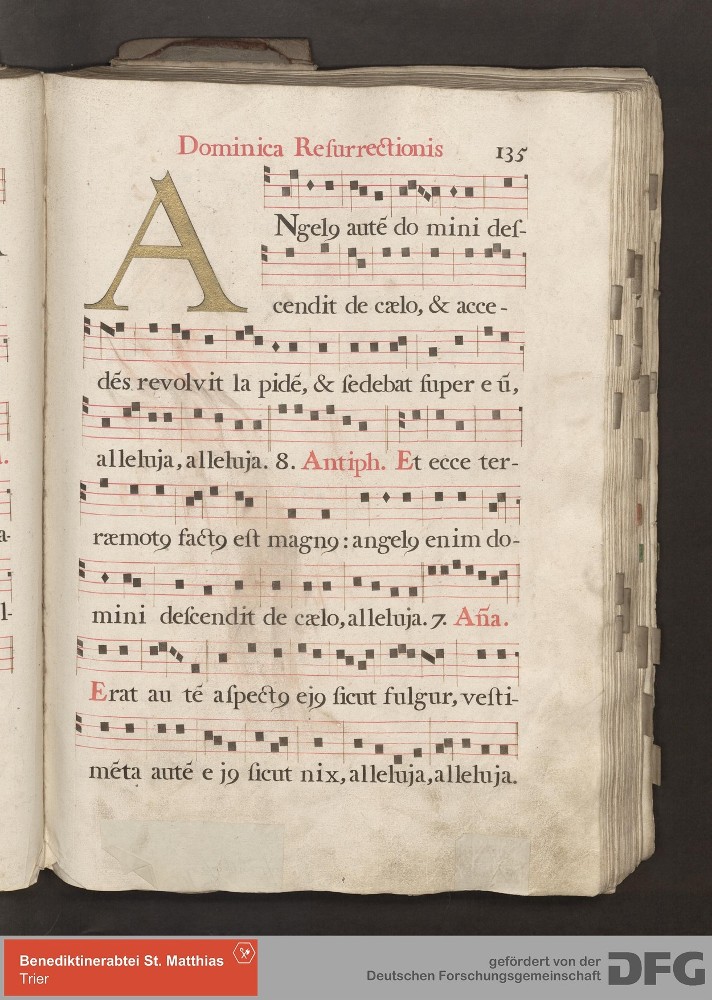 Dominica Reſurrectionis 135
ANgelꝯ autē do mini deſ-
cendit de cælo, & acce-
dēs revolvit la pidē, & ſedebat ſuper e ū,
alleluja, alleluja. 8. Antiph. Et ecce ter-
ræmotꝯ factꝯ eſt magnꝯ: angelꝯ enim do-
mini deſcendit de cælo, alleluja. 7. Aña.
Erat au tē aſpectꝯ ejꝯ ſicut fulgur, veſti-
mēta autē e jꝯ ſicut nix, alleluja, alleluja.
Benediktinerabtei St. Matthias
Trier
gefördert von der
Deutschen Forschungsgemeinschaft
DFG